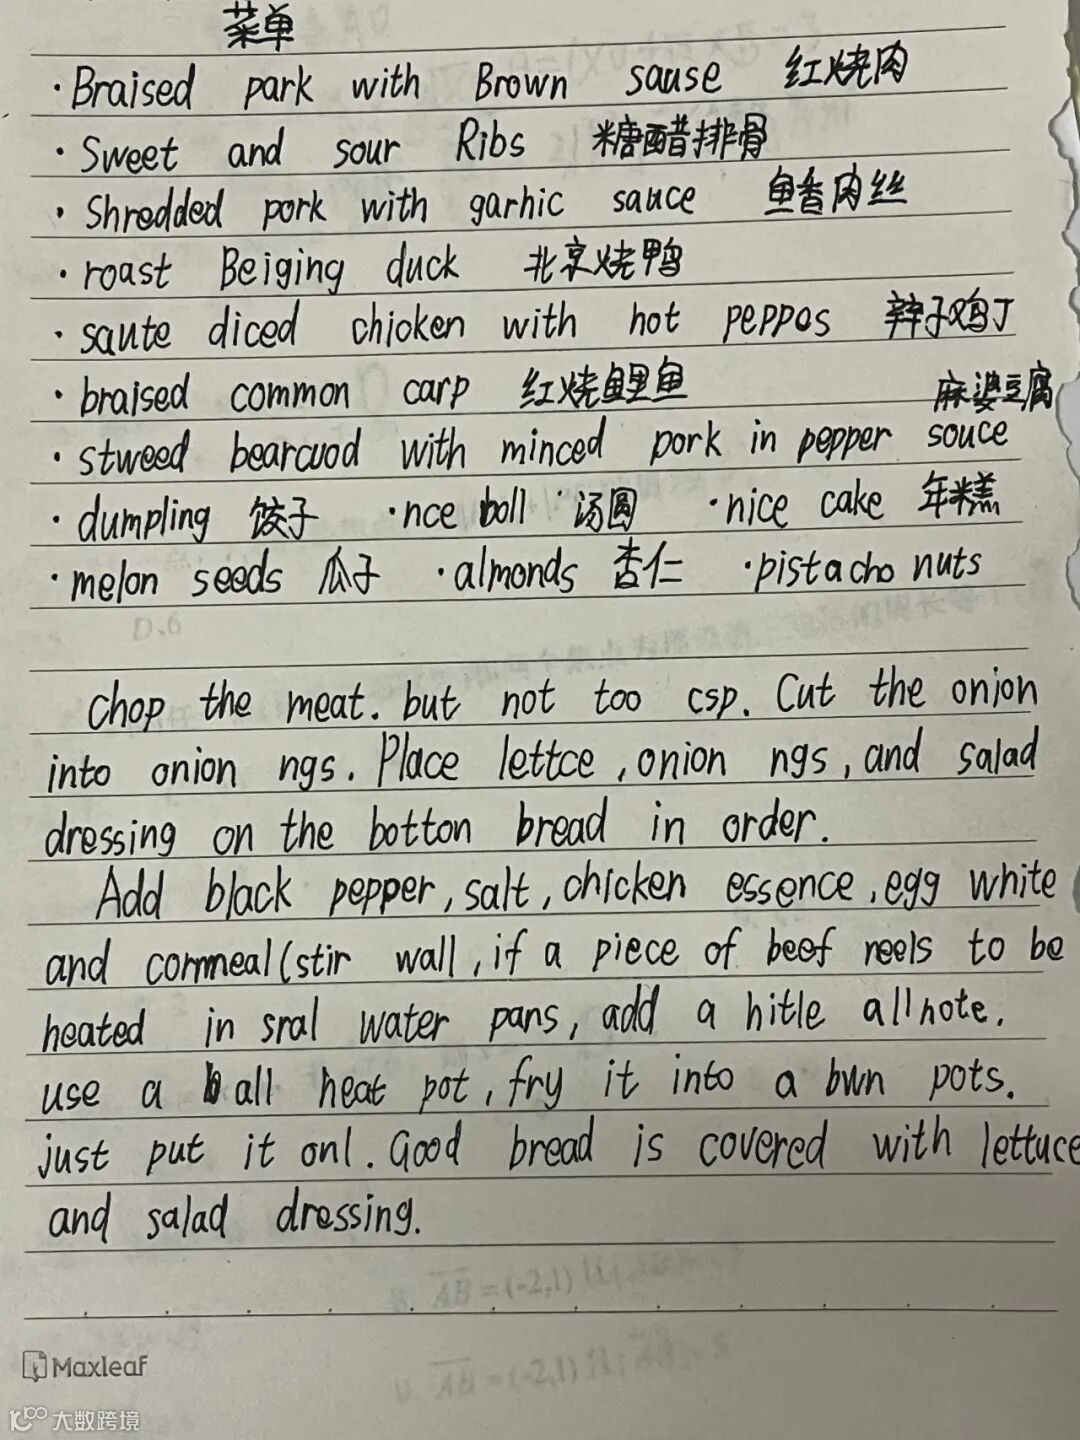 菜单
· Braised park with Brown sause 红烧肉
· Sweet and sour Ribs 糖醋排骨
· Shredded pork with garhic sauce 鱼香肉丝
· roast Beiging duck 北京烧鸭
· saute diced chicken with hot peppos 辣子鸡丁
· braised common carp 红烧鲤鱼 麻婆豆腐
· stweed bearcuod with minced pork in pepper souce
· dumpling 饺子 · nce boll 汤圆 · nice cake 年糕
· melon seeds 瓜子 · almonds 杏仁 · pistacho nuts
D.6
Chop the meat. but not too csp. Cut the onion
into onion ngs. Place lettce, onion ngs, and salad
dressing on the botton bread in order.
Add black pepper, salt, chicken essence, egg white
and commeal(stir wall, if a piece of beef reels to be
heated in sral water pans, add a hitle allnote.
use a ball heat pot, fry it into a bun pots.
just put it onl. Good bread is covered with lettuce
and salad dressing.
Maxleaf
大数跨境